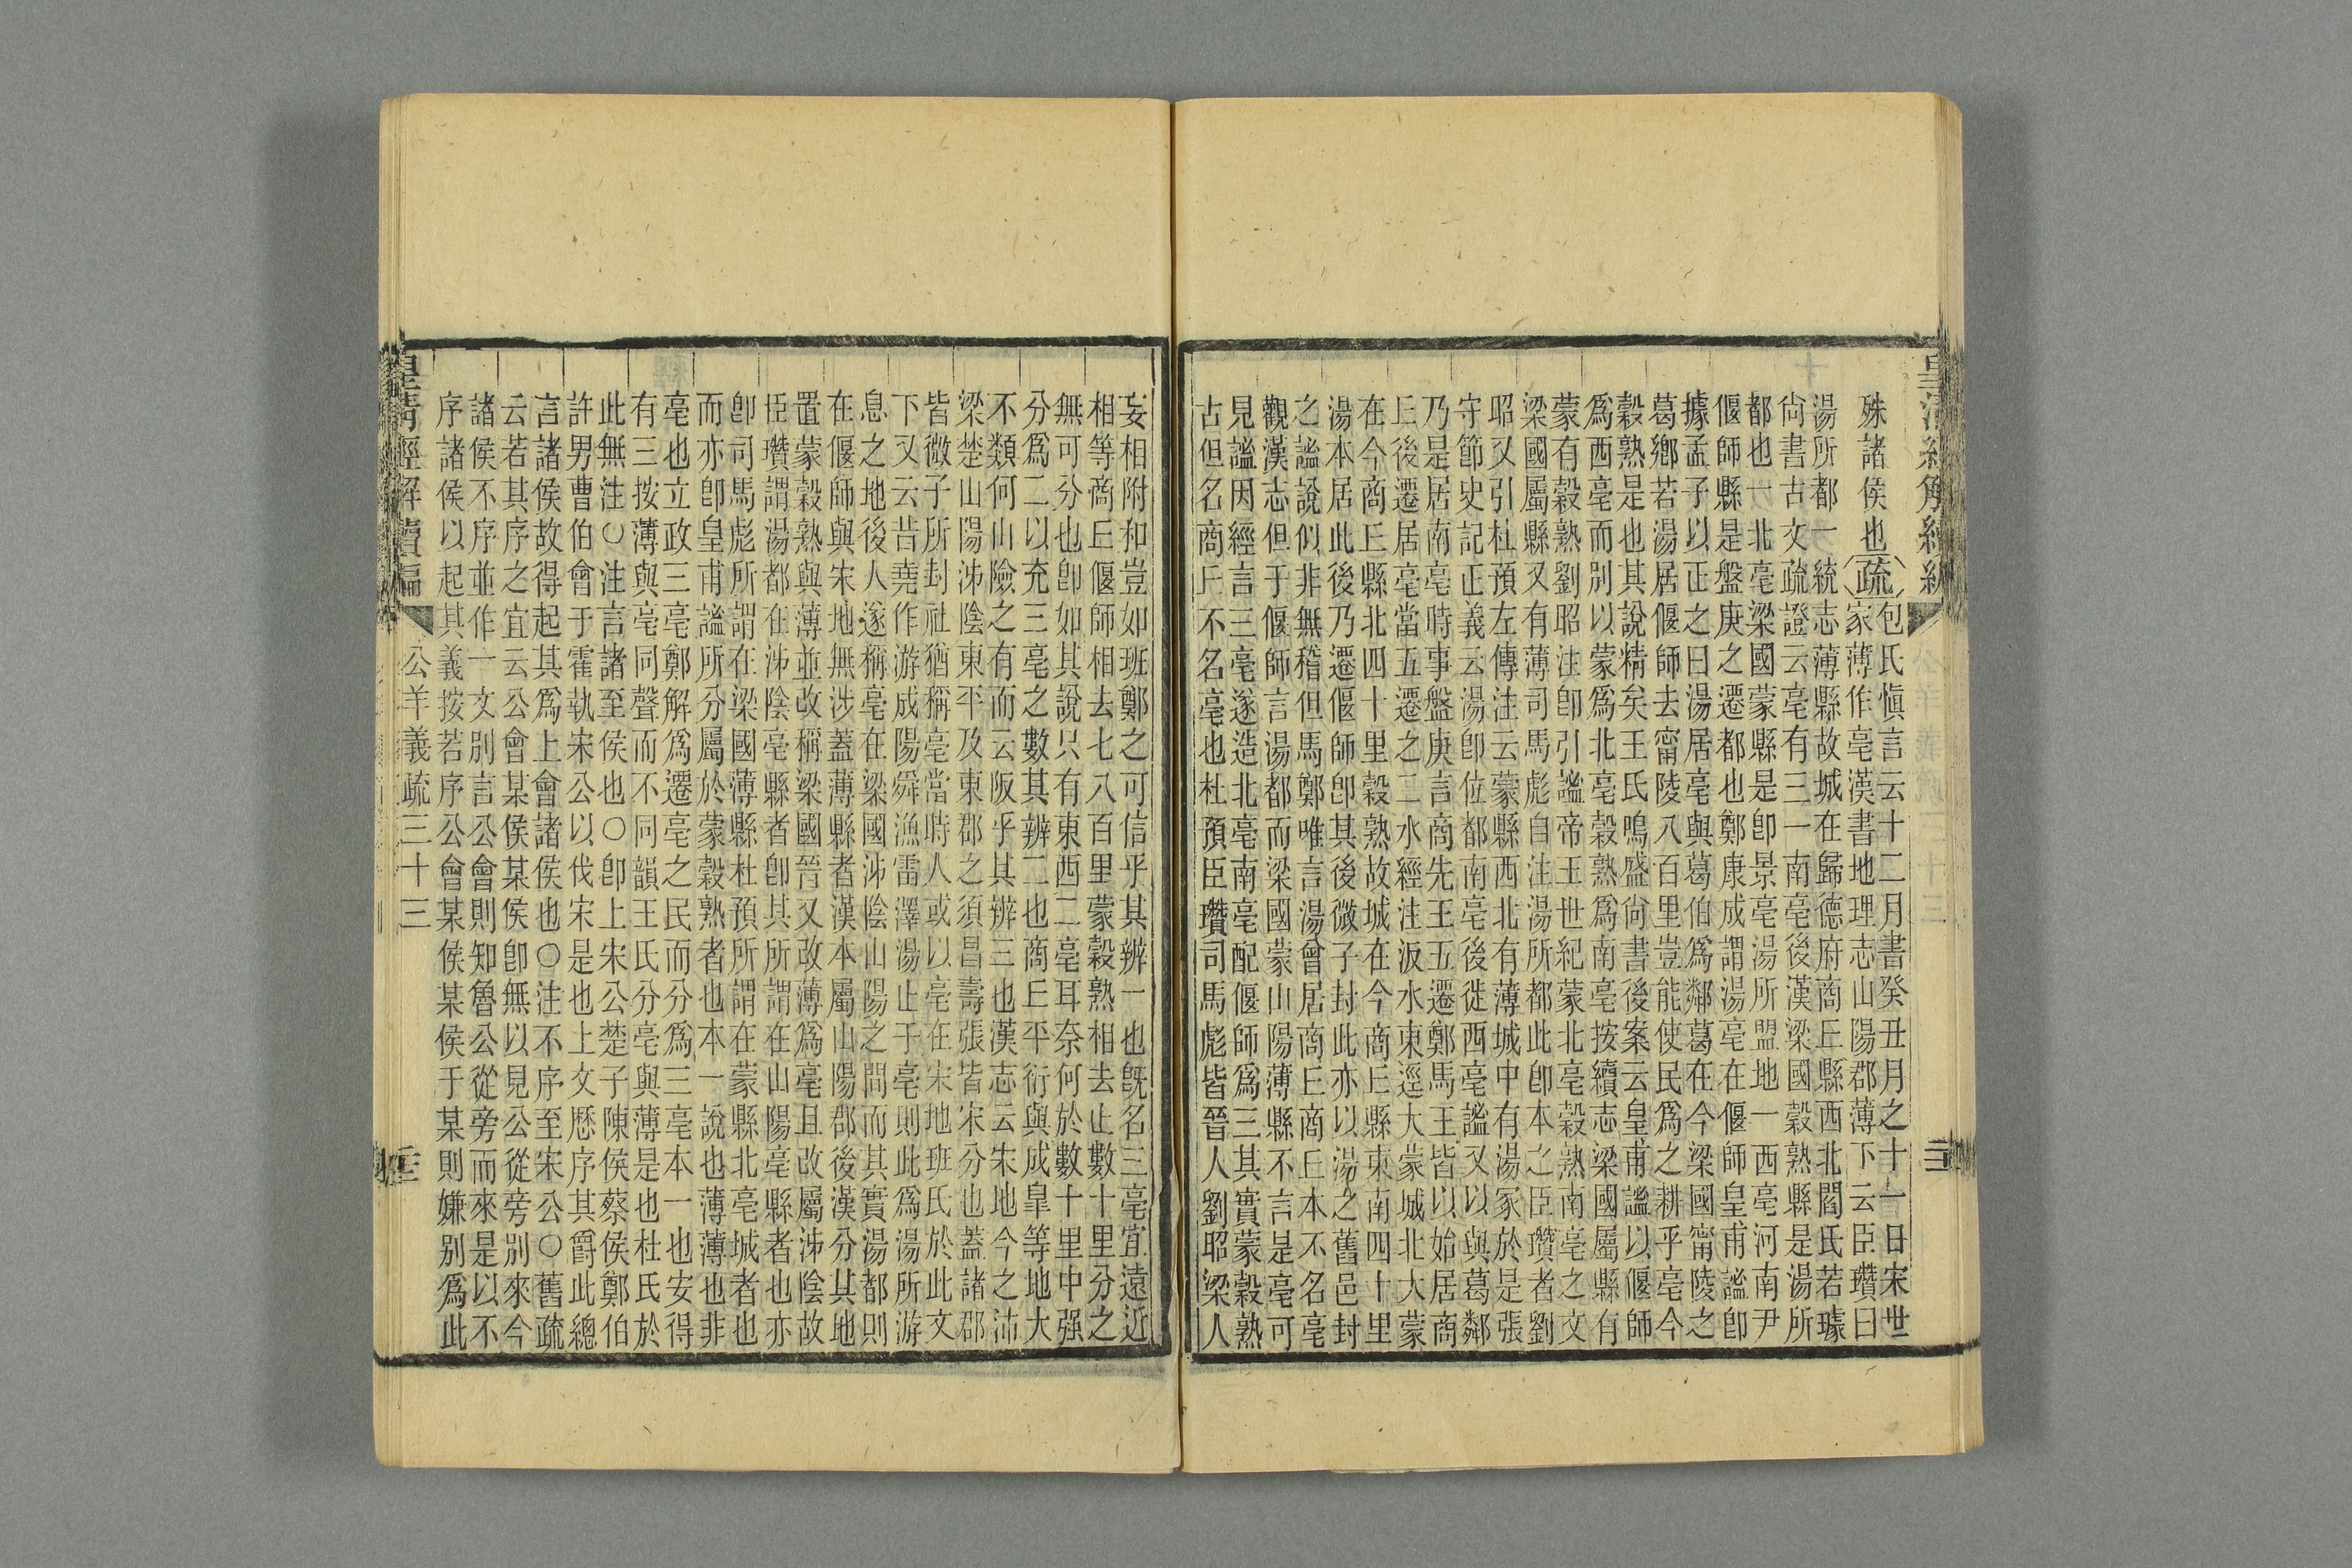 皇清經解續編
三
殊諸侯也疏包氏愼言云十二月書癸丑月之十一日宋世
家薄作亳漢書地理志山陽郡薄下云臣瓚曰
湯所都一統志薄縣故城在歸德府商丘縣西北閻氏若璩
尚書古文疏證云亳有三一南亳後漢梁國穀熟縣是湯所
都也一北亳梁國蒙縣是卽景亳湯所盟地一西亳河南尹
偃師縣是盤庚之遷都也鄭康成謂湯亳在偃師皇甫謐卽
據孟子以正之曰湯居亳與葛伯爲鄰葛在今梁國甯陵之
葛鄕若湯居偃師去甯陵八百里豈能使民爲之耕乎亳今
穀熟是也其說精矣王氏鳴盛尚書後案云皇甫謐以偃師
爲西亳而別以蒙爲北亳穀熟爲南亳按續志梁國屬縣有
蒙有穀熟劉昭注卽引謐帝王世紀蒙北亳穀熟南亳之文
梁國屬縣又有薄司馬彪自注湯所都此卽本之臣瓚者劉
昭又引杜預左傳注云蒙縣西北有薄城中有湯冢於是張
守節史記正義云湯卽位都南亳後徙西亳謐又以與葛鄰
乃是居南亳時事盤庚言商先王五遷鄭馬王皆以始居商
丘後遷居亳當五遷之二水經注汳水東逕大蒙城北大蒙
在今商丘縣北四十里穀熟故城在今商丘縣東南四十里
湯本居此後乃遷偃師卽其後微子封此亦以湯之舊邑封
之謐說似非無稽但馬鄭唯言湯曾居商丘商丘本不名亳
觀漢志但于偃師言湯都而梁國蒙山陽薄縣不言是亳可
見謐因經言三亳遂造北亳南亳配偃師爲三其實蒙穀熟
古但名商丘不名亳也杜預臣瓚司馬彪皆晉人劉昭梁人
妄相附和豈如班鄭之可信乎其辨一也旣名三亳宜遠近
相等商丘偃師相去七八百里蒙穀熟相去止數十里分之
無可分也卽如其說只有東西二亳耳奈何於數十里中强
分爲二以充三亳之數其辨二也商丘平衍與成皐等地大
不類何山險之有而云阪乎其辨三也漢志云宋地今之沛
梁楚山陽泲陰東平及東郡之須昌壽張皆宋分也蓋諸郡
皆微子所封社猶稱亳當時人或以亳在宋地班氏於此文
下又云昔堯作游成陽舜漁雷澤湯止于亳則此爲湯所游
息之地後人遂稱亳在梁國泲陰山陽之間而其實湯都則
在偃師與宋地無涉蓋薄縣者漢本屬山陽郡後漢分其地
置蒙穀熟與薄並改稱梁國晉又改薄爲亳且改屬泲陰故
臣瓚謂湯都在泲陰亳縣者卽其所謂在山陽亳縣者也亦
卽司馬彪所謂在梁國薄縣杜預所謂在蒙縣北亳城者也
而亦卽皇甫謐所分屬於蒙穀熟者也本一說也薄薄也非
亳也立政三亳鄭解爲遷亳之民而分爲三亳本一也安得
有三按薄與亳同聲而不同韻王氏分亳與薄是也杜氏於
此無注○注言諸至侯也○卽上宋公楚子陳侯蔡侯鄭伯
許男曹伯會于霍執宋公以伐宋是也上文歷序其爵此總
言諸侯故得起其爲上會諸侯也○注不序至宋公○舊疏
云若其序之宜云公會某侯某侯卽無以見公從旁別來今
諸侯不序並作一文別言公會則知魯公從旁而來是以不
序諸侯以起其義按若序公會某侯某侯于某則嫌別爲此
皇清經解續編
公羊義疏三十三